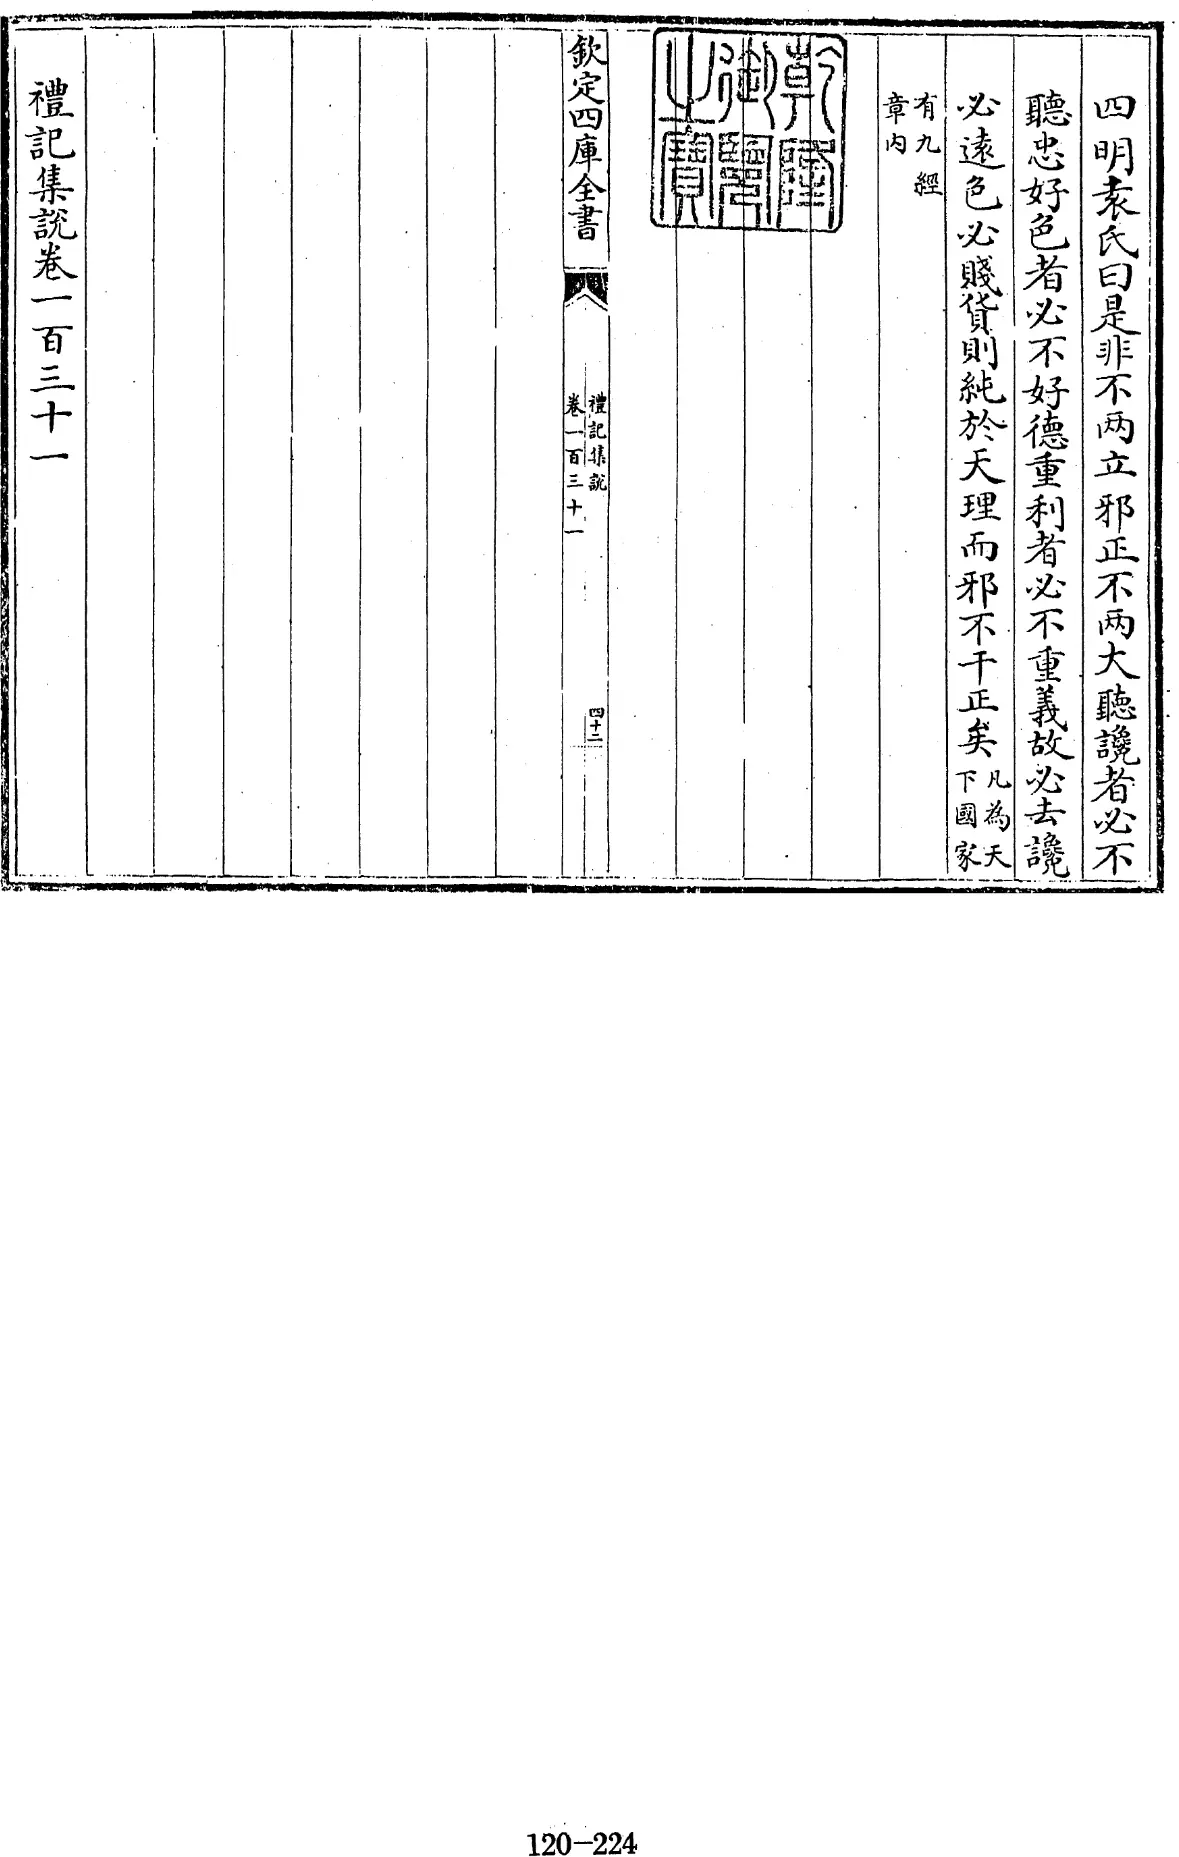 四明袁氏曰是非不两立邪正不两大聽讒者必不
聽忠好色者必不好德重利者必不重義故必去讒
必遠色必賤貨則純於天理而邪不干正矣凡為天
下國家
有九經
章内
乾隆
御覽
之寶
欽定四庫全書
禮記集說
卷一百三十一
四十二
禮記集說卷一百三十一
120-224